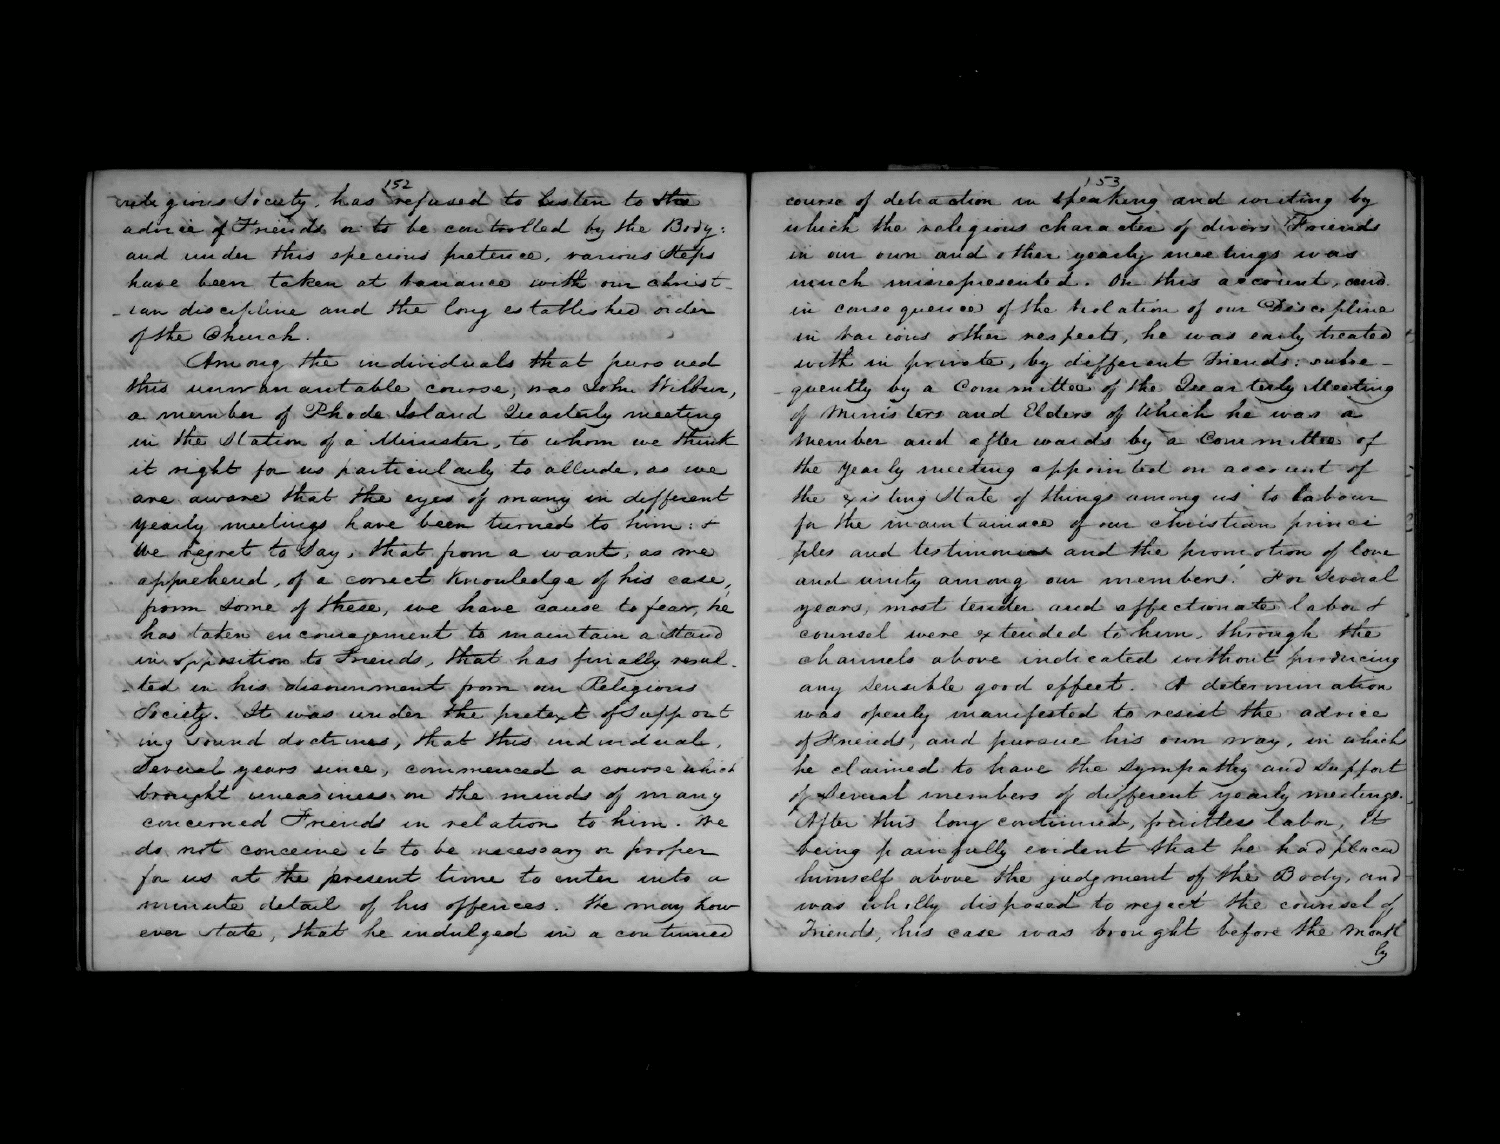 152
religious Society, has refused to listen to the
advice of Friends or to be controlled by the Body:
and under this specious pretence, various Steps
have been taken at variance with our christ-
-ian discipline and the long established order
of the Church.
Among the individuals that pursued
this unwarrantable course, was John Wilbur,
a member of Rhode Island Quarterly meeting
in the Station of a Minister, to whom we think
it right for us particularly to allude, as we
are aware that the eyes of many in different
yearly meetings have been turned to him: &
we regret to Say, that from a want, as we
apprehend, of a correct Knowledge of his case,
from Some of these, we have cause to fear, he
has taken encouragement to maintain a Stand
in opposition to Friends, that has finally resul-
-ted in his disownment from our Religious
Society. It was under the pretext of Support
ing Sound doctrines, that this individual,
Several years since, commenced a course which
brought uneasiness on the minds of many
concerned Friends in relation to him. We
do not conceive it to be necessary or proper
for us at the present time to enter into a
minute detail of his offences. We may how
ever State, that he indulged in a continued
153
course of detraction in Speaking and writing by
which the religious character of divers Friends
in our own and other yearly meetings was
much misrepresented. On this account, and
in consequence of the violation of our Discipline
in various other respects, he was early treated
with in private, by different Friends: subse-
-quently by a Committee of the Quarterly Meeting
of Ministers and Elders of Which he was a
member and afterwards by a Committee of
the yearly meeting appointed on account of
the existing State of things among us to labour
for the maintainace of our christian princi
ples and testimonies and the promotion of love
and unity among our members. For Several
years, most tender and affectionate labor &
counsel were extended to him, through the
channels above indicated without producing
any Sensible good effect. A determination
was openly manifested to resist the advice
of Friends, and pursue his own way, in which
he claimed to have the Sympathy and Support
of Several members of different yearly meetings.
After this long continued, fruitless labor, It
being painfully evident that he had placed
himself above the judgment of the Body, and
was wholly disposed to reject the counsel of
Friends, his case was brought before the month
ly